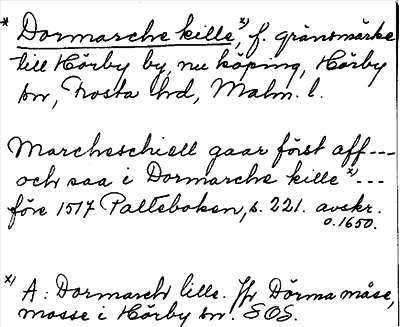 * Dormarche kille,*) f. gränsmärke
till Hörby by, nu köping, Hörby
sn, Frosta hd, Malm. l.
Marcheschiell gaar först aff ---
och saa i Dormarche kille *) ---
före 1517 Palteboken, s. 221. avskr.
o. 1650.
*) A: Dormarch lille. Jfr Dörma måse,
mosse i Hörby sn. SOS.